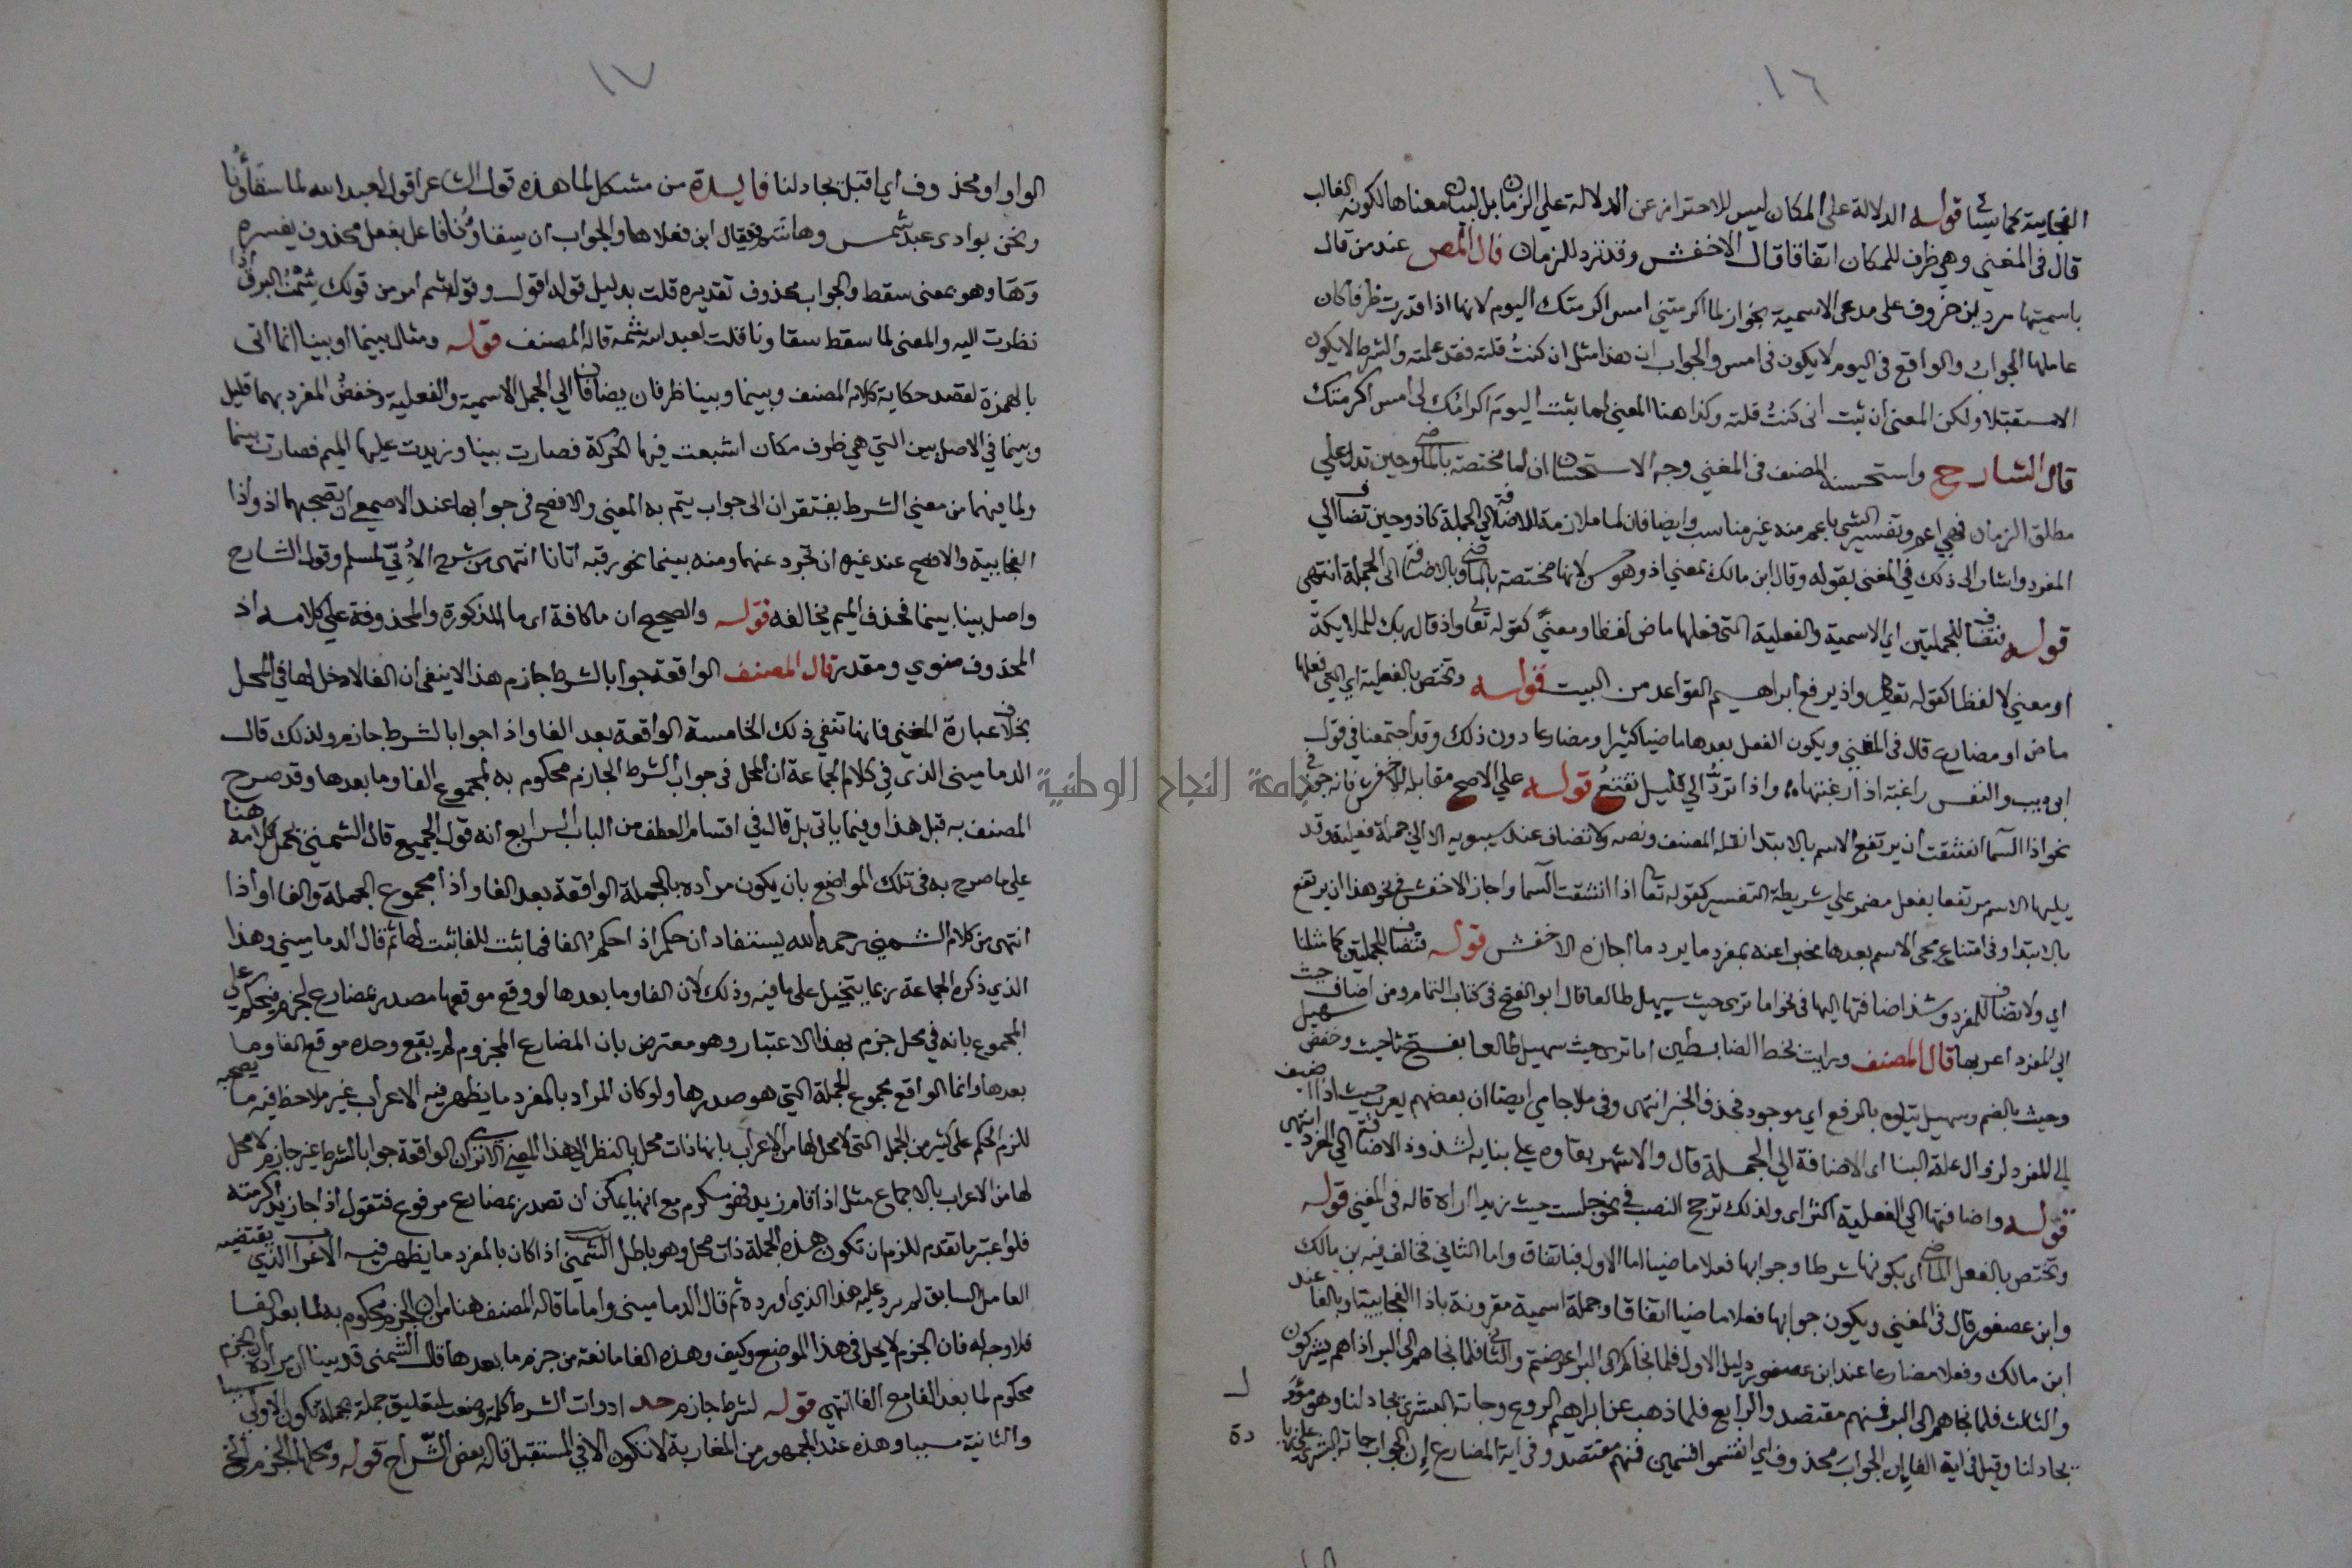 ١٦
الفجاىية كما سيأتي قوله الدلالة على المكان ليس للاحتراز عن الدلالة على الزمان بل لبيان معناها لكونه الغالب
قال في المغني وهي ظرف للمكان اتفاقا قال الاخفش وقد ترد للزمان قال المص عند من قال
باسميتها رد ابن خروف على مدعى الاسمية بجواز لما اكرمتني امس اكرمتك اليوم لانها اذا قدرت ظرفا كان
عاملها الجواب والواقع في اليوم لا يكون في امس والجواب ان هذا مثل ان كنتُ قلته فقد علمته والشرط لا يكون
الا مستقبلا ولكن المعنى ان ثبت اني كنتُ قلته وكذا هنا المعنى لما ثبت اليوم اكرامك لي امس اكرمتك
قال الشارح واستحسنه المصنف في المغني وجه الاستحسان ان لما مختصة بالماضي وحين تدل على
مطلق الزمان فهي اعم وتفسير الشي باعم منه غير مناسب وايضا فان لما ملازمة للاضافة الى الجملة كاذ وحين تضاف الى
المفرد واشار الى ذلك في المغني بقوله وقال ابن مالك بمعنى اذ وهو حسن لانها مختصة بالماضي وبالاضافة الى الجملة انتهى
قوله فتضاف للجملتين اي الاسمية والفعلية التي فعلها ماض لفظا ومعنىً كقوله تعالى واذ قال ربك للملايكة
او معنى لا لفظا كقوله تعالى واذ يرفع ابراهيم القواعد من البيت قوله وتختص بالفعلية اي التي فعلها
ماض او مضارع قال في المغني ويكون الفعل بعدها ماضيا كثيرا ومضارعا دون ذلك وقد اجتمعا في قول
ابى ذويب والنفس راغبة اذا رغبتها واذا تردُّ الى قليل تقنعُ قوله على الاصح مقابله للاخفش فانه جوز في
نحو اذا السما انشقت ان يرتفع الاسم بالابتدا نقله المصنف ونصه ولا تضاف عند سيبويه الا الى جملة فعلية وقد
يليها الاسم مرتفعا بفعل مضمر على شريطة التفسير كقوله تعالى اذا انشقت السما واجاز الاخفش في نحو هذا ان يرتفع
بالابتدا وفي امتناع مجى الاسم بعدها مخبرا عنه بمفرد ما يرد ما اجازه الاخفش قوله فتضاف للجملتين كما مثلنا
اي ولا تضاف للمفرد وشذ اضافتها اليها في نحو اما ترى حيث سهيل طالعا قال ابو الفتح في كتاب التمام ومن اضاف حيث
الى المفرد اعربها قال المصنف ورايت بخط الضابطين اما ترى حيث سهيل طالعا بفتح ثا حيث وخفض سهيل
وحيث بالضم وسهيل بالرفع اي موجود فحذف الخبر انتهى وفي ملا جامي ايضا ان بعضهم يعرب حيث اذا اضيف
الى المفرد لزوال علة البنا اى الاضافة الى الجملة قال والاشهر بقاوه على بنايه لشذوذ الاضافة الى المفرد انتهى
قوله واضافتها الى الفعلية اكثر اى ولذلك ترجح النصب في نحو جلست حيث زيدا اراه قاله في المغني قوله
وتختص بالفعل الماضي اى بكونها شرطا وجوابها فعلا ماضيا اما الاول فباتفاق واما الثاني فخالف فيه بن مالك
وابن عصفور قال في المغني ويكون جوابها فعلا ماضيا اتفاقا وجملة اسمية مقرونة باذا الفجاىية او بالفا عند
ابن مالك وفعلا مضارعا عند ابن عصفور دليل الاول فلما نجاكم الى البر اعرضتم والثاني فلما نجاهم الى البر اذا هم يشركون
والثالث فلما نجاهم الى البر فمنهم مقتصد والرابع فلما ذهب عن ابراهيم الروع وجاته البشرى يجادلنا وهو مؤوَّل
بجادلنا وقيل في اية الفا ان الجواب محذوف اي انقسموا قسمين فمنهم مقتصد وفي اية المضارع ان الجواب جاته البشرى على زيادة
١٧
الواو او محذوف اي اقبل يجادلنا فايدة من مشكل لما هذه قول الشاعر اقول لعبد الله لما سقاؤنا
ونحن بوادى عبد شمس وهاشم فيقال اين فعلاها والجواب ان سقاؤنا فاعل بفعل محذوف يفسره
وَهَا وهو بمعنى سقط والجواب محذوف تقديره قلت بدليل قوله اقول وقوله شم امر من قولك شِمْتُ البرق اذا
نظرت اليه والمعنى لما سقط سقاونا قلت لعبد الله شمه قاله المصنف قوله ومثال بينما او بينا انما اتى
بالهمزة لقصد حكاية كلام المصنف وبينما وبينا ظرفان يضافان الى الجمل الاسمية والفعلية وخفضُ المفرد بهما قليل
وبينما في الاصل بين التي هي ظرف مكان اشبعت فيها الحركة فصارت بينا وزيدت عليها الميم فصارت بينما
ولما فيهما من معنى الشرط يفتقران الى جواب يتم به المعنى والافصح في جوابها عند الاصمعي ان يصحبها اذ واذا
الفجاىية والافصح عند غيره ان تجرد عنهما ومنه بينما نحن نرقبه اتانا انتهى من شرح الاُبّيّ لمسلم وقول الشارح
واصل بينا بينما فحذف الميم يخالفه قوله والصحيح ان ما كافة اى ما المذكورة والمحذوفة على كلامه اذ
المحذوف منوي ومقدر قال المصنف الواقعة جوابا لشرط جازم هذا لا ينفي ان الفا لا دخل لها في المحل
بخلاف عبارة المغني فانها تنفي ذلك الخامسة الواقعة بعد الفا واذا جوابا لشرط جازم ولذلك قال
الدماميني الذى في كلام الجماعة ان المحل في جواب الشرط الجازم محكوم به لمجموع الفا وما بعدها وقد صرح
المصنف به قبل هذا وفيما ياتي بل قال في اقسام العطف من الباب الرابع انه قول الجميع قال الشمني يحمل كلامه هنا
على ما صرح به في تلك المواضع بان يكون مراده بالجملة الواقعة بعد الفا واذا مجموع الجملة والفا او اذا
انتهى من كلام الشمني رحمه الله يستفاد ان حكم اذا حكم الفا فما ثبت للفا ثبت لها ثم قال الدماميني وهذا
الذي ذكره الجماعة ربما يتخيل على ما فيه وذلك لان الفا وما بعدها لو وقع موقعها مصدر بمضارع لجزم فيحكم على
المجموع بانه في محل جزم بهذا الاعتبار وهو معترض بان المضارع المجزوم لم يقع وحده موقع الفا وما
بعدها وانما الواقع مجموع الجملة التي هو صدرها ولو كان المراد بالمفرد ما يظهر فيه الاعراب غير ملاحظ فيه ما يصحبه
للزم الحكم على كثير من الجمل التي لا محل لها من الاعراب بانها ذات محل بالنظر الى هذا المعنى الا ترى ان الواقعة جوابا لشرط غير جازم لا محل
لها من الاعراب بالاجماع مثل اذا قام زيد فهو مكرم مع انها يمكن ان تصدر بمضارع مرفوع فتقول اذا جا زيد اكرمته
فلو اعتبر ما تقدم للزم ان تكون هذه الجملة ذات محل وهو باطل الشمني اذا كان بالمفرد ما يظهر فيه الاعراب الذي يقتضيه
العامل السابق لم يرد عليه هذا الذي اورده ثم قال الدماميني واما ما قاله المصنف هنا من ان الجزم محكوم به لما بعد الفا
فلا وجه له فان الجزم لا يحل في هذا الموضع وكيف وهذه الفا مانعة من جزم ما بعدها قال الشمني قد بينا ان مراده بان الجزم
محكوم لما بعد الفا مع الفا انتهى قوله لشرط جازم حد ادوات الشرط كلمة وضعت لتعليق جملة بجملة تكون الاولى سببا
والثانية مسببا وهذه عند الجمهور من المغاربة لا تكون الا في المستقبل قاله بعض الشراح قوله ومحلها الجزم الخ
جامعة النجاح الوطنية